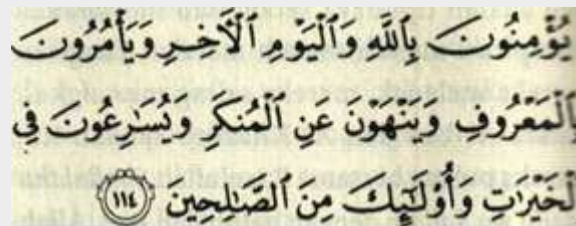 يُؤْمِنُونَ بِٱللَّهِ وَٱلْيَوْمِ ٱلْأَخِرِ وَيَأْمُرُونَ
بِٱلْمَعْرُوفِ وَيَنْهَوْنَ عَنِ ٱلْمُنكَرِ وَيُسَٰرِعُونَ فِي
ٱلْخَيْرَٰتِ وَأُوْلَٰٓئِكَ مِنَ ٱلصَّٰلِحِينَ ١١٤